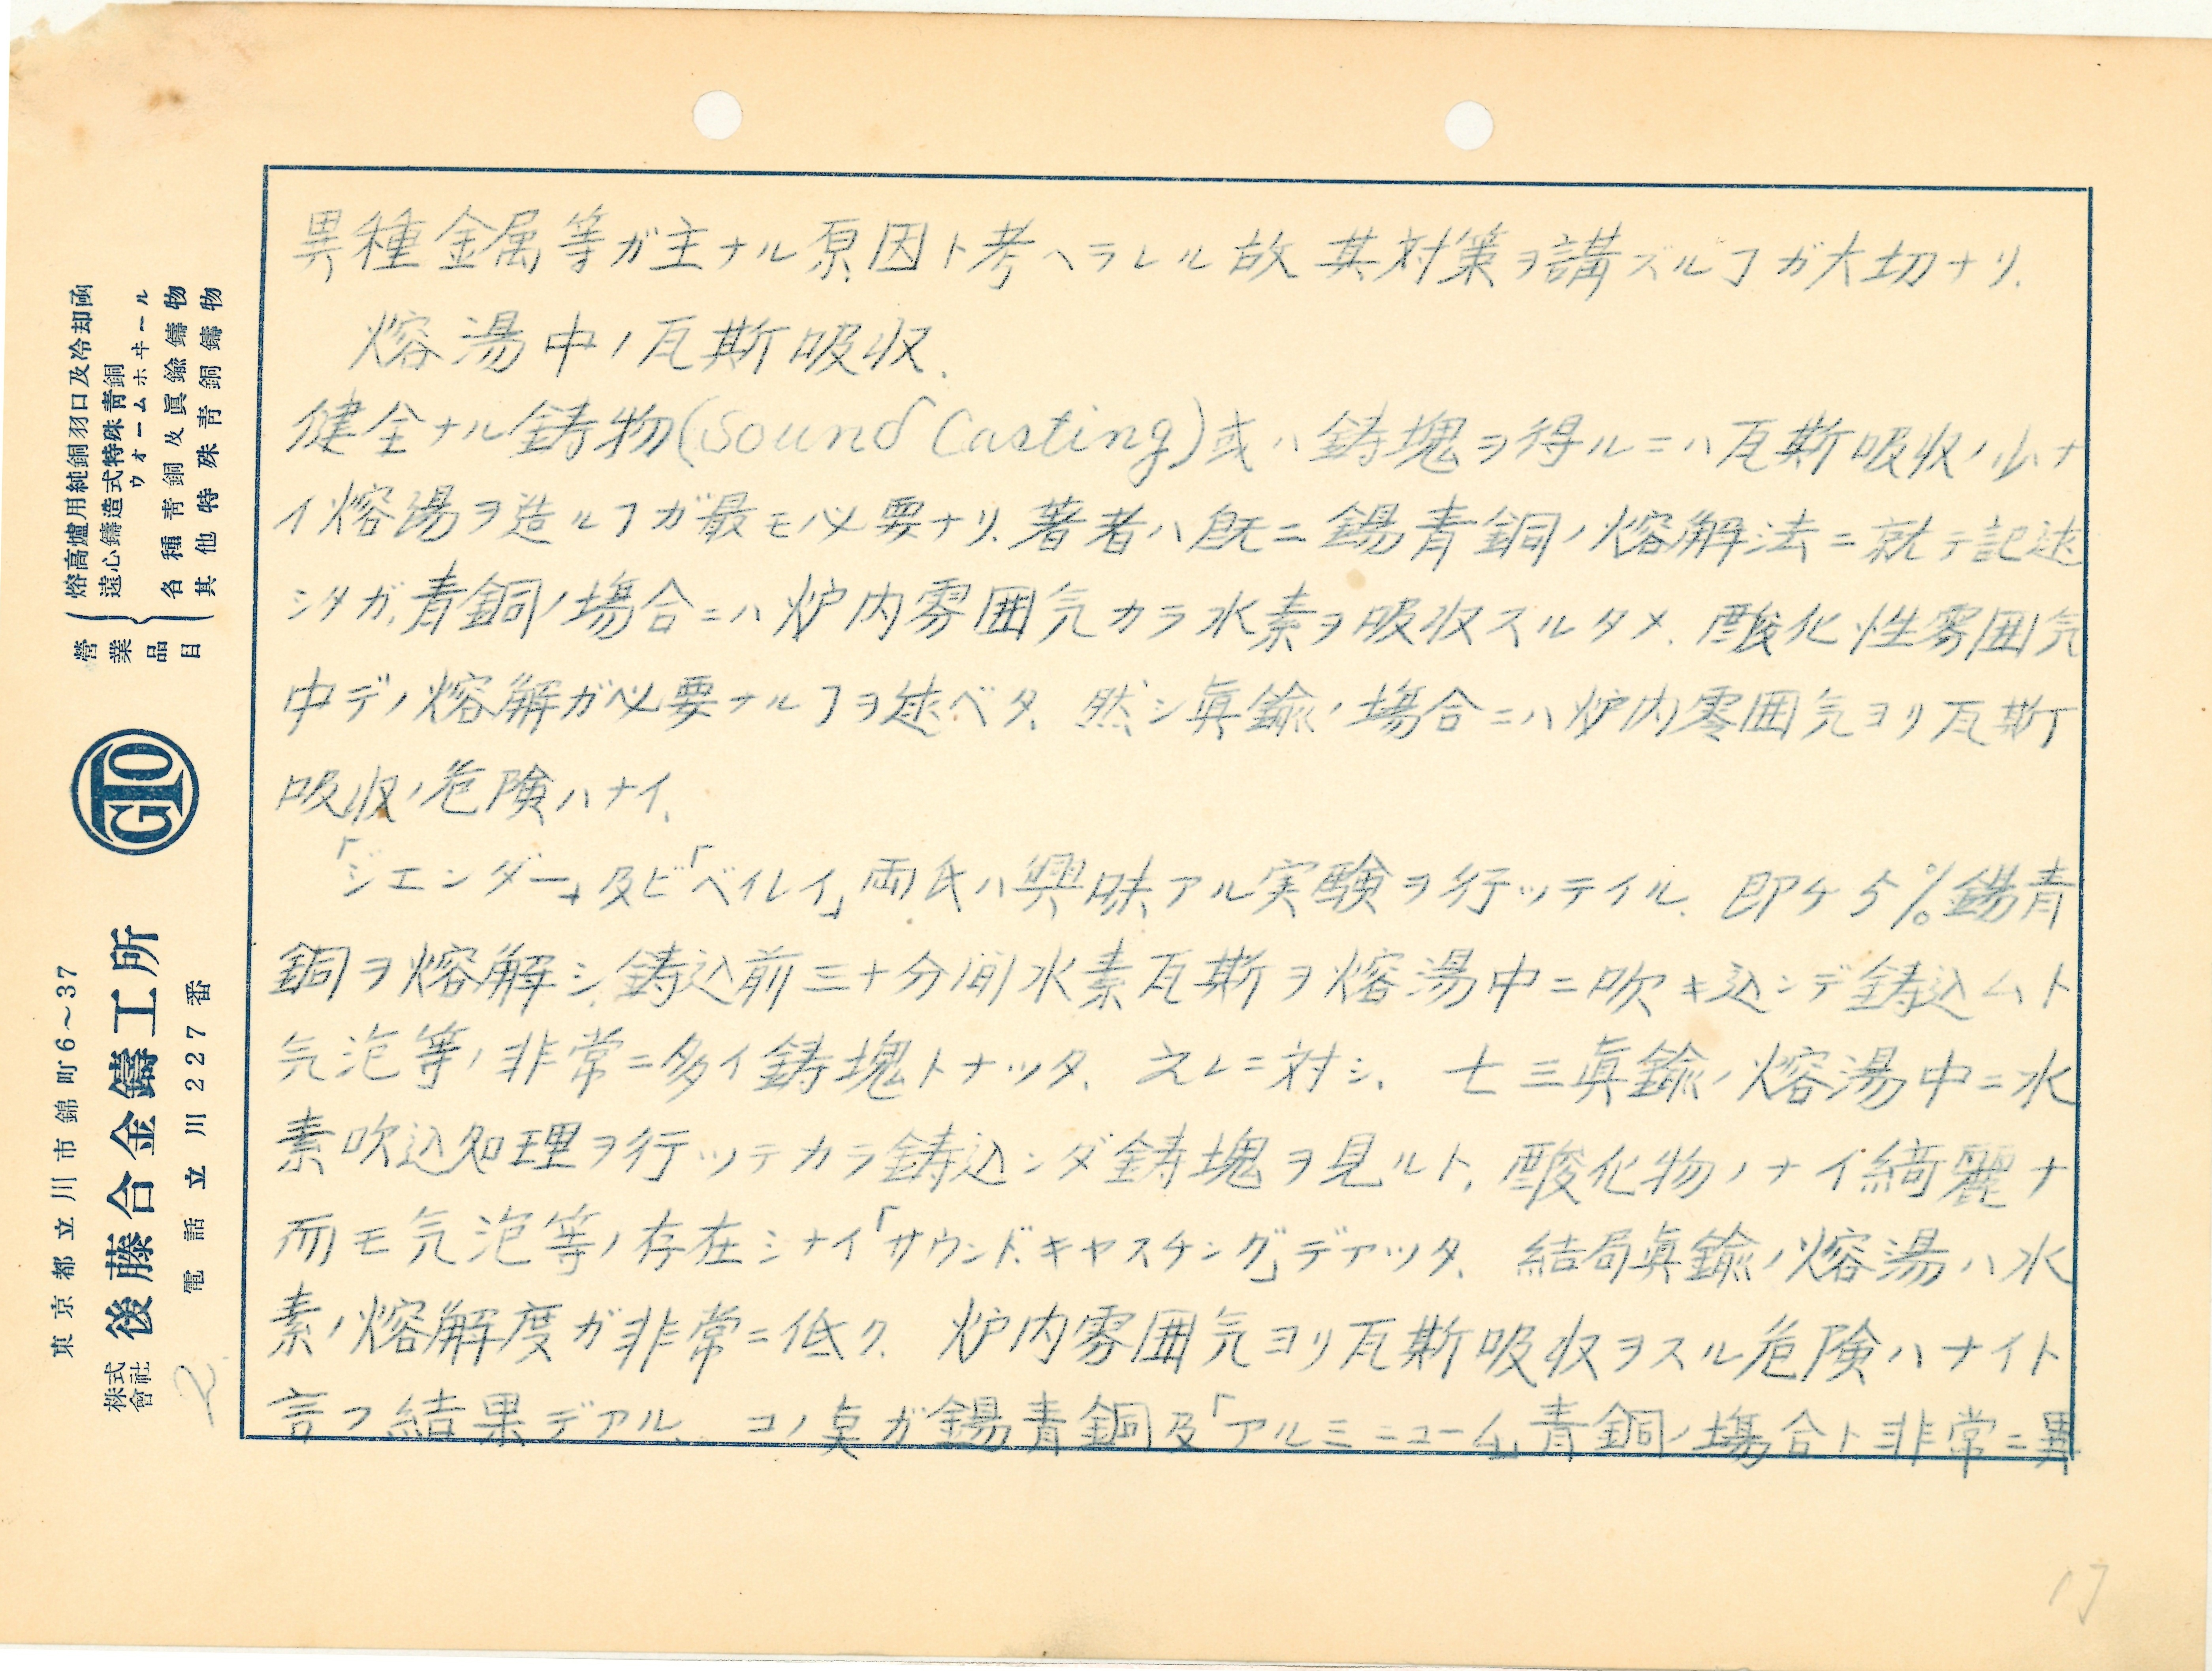 異種金属等ガ主ナル原因ト考ヘラレル故其対策ヲ講ズルヿガ大切ナリ.
熔湯中ノ瓦斯吸収.
健全ナル鋳物(Sound Casting)或ハ鋳塊ヲ得ルニハ瓦斯吸収ノ少ナ
イ熔湯ヲ造ルヿガ最モ必要ナリ.著者ハ既ニ錫青銅ノ熔解法ニ就テ記述
シタガ,青銅ノ場合ニハ炉内雰囲気カラ水素ヲ吸収スルタメ、酸化性雰囲気
中デノ熔解ガ必要ナルヿヲ述ベタ、然シ眞鍮ノ場合ニハ炉内雰囲気ヨリ瓦斯
吸収ノ危険ハナイ、
「ジエンダー」及ビ「ベイレイ」両氏ハ興味アル実験ヲ行ッテイル、即ケ5%錫青
銅ヲ熔解シ、鋳込前三十分間水素瓦斯ヲ熔湯中ニ吹キ込ンデ鋳込ムト
気泡等ノ非常ニ多イ鋳塊トナッタ、之レニ対シ、七三眞鍮ノ熔湯中ニ水
素吹込処理ヲ行ッテカラ鋳込ンダ鋳塊ヲ見ルト、酸化物ノナイ綺麗ナ
而モ気泡等ノ存在シナイ「サウンド.キヤスチング」デアッタ、結局眞鍮ノ熔湯ハ水
素ノ熔解度ガ非常ニ低ク、炉内雰囲気ヨリ瓦斯吸収ヲスル危険ハナイト
言フ結果デアル、コノ臭ガ錫青銅及「アルミニューム」青銅ノ場合ト非常ニ異
17
營業品目
熔高爐用純銅羽口及冷却函
遠心鑄造式特殊靑銅
ウォームホヰール
各種靑銅及眞鍮鑄物
其他特殊靑銅鑄物
GTO
東京都立川市錦町6～37
株式會社 後藤合金鑄工所
電話立川227番
2.